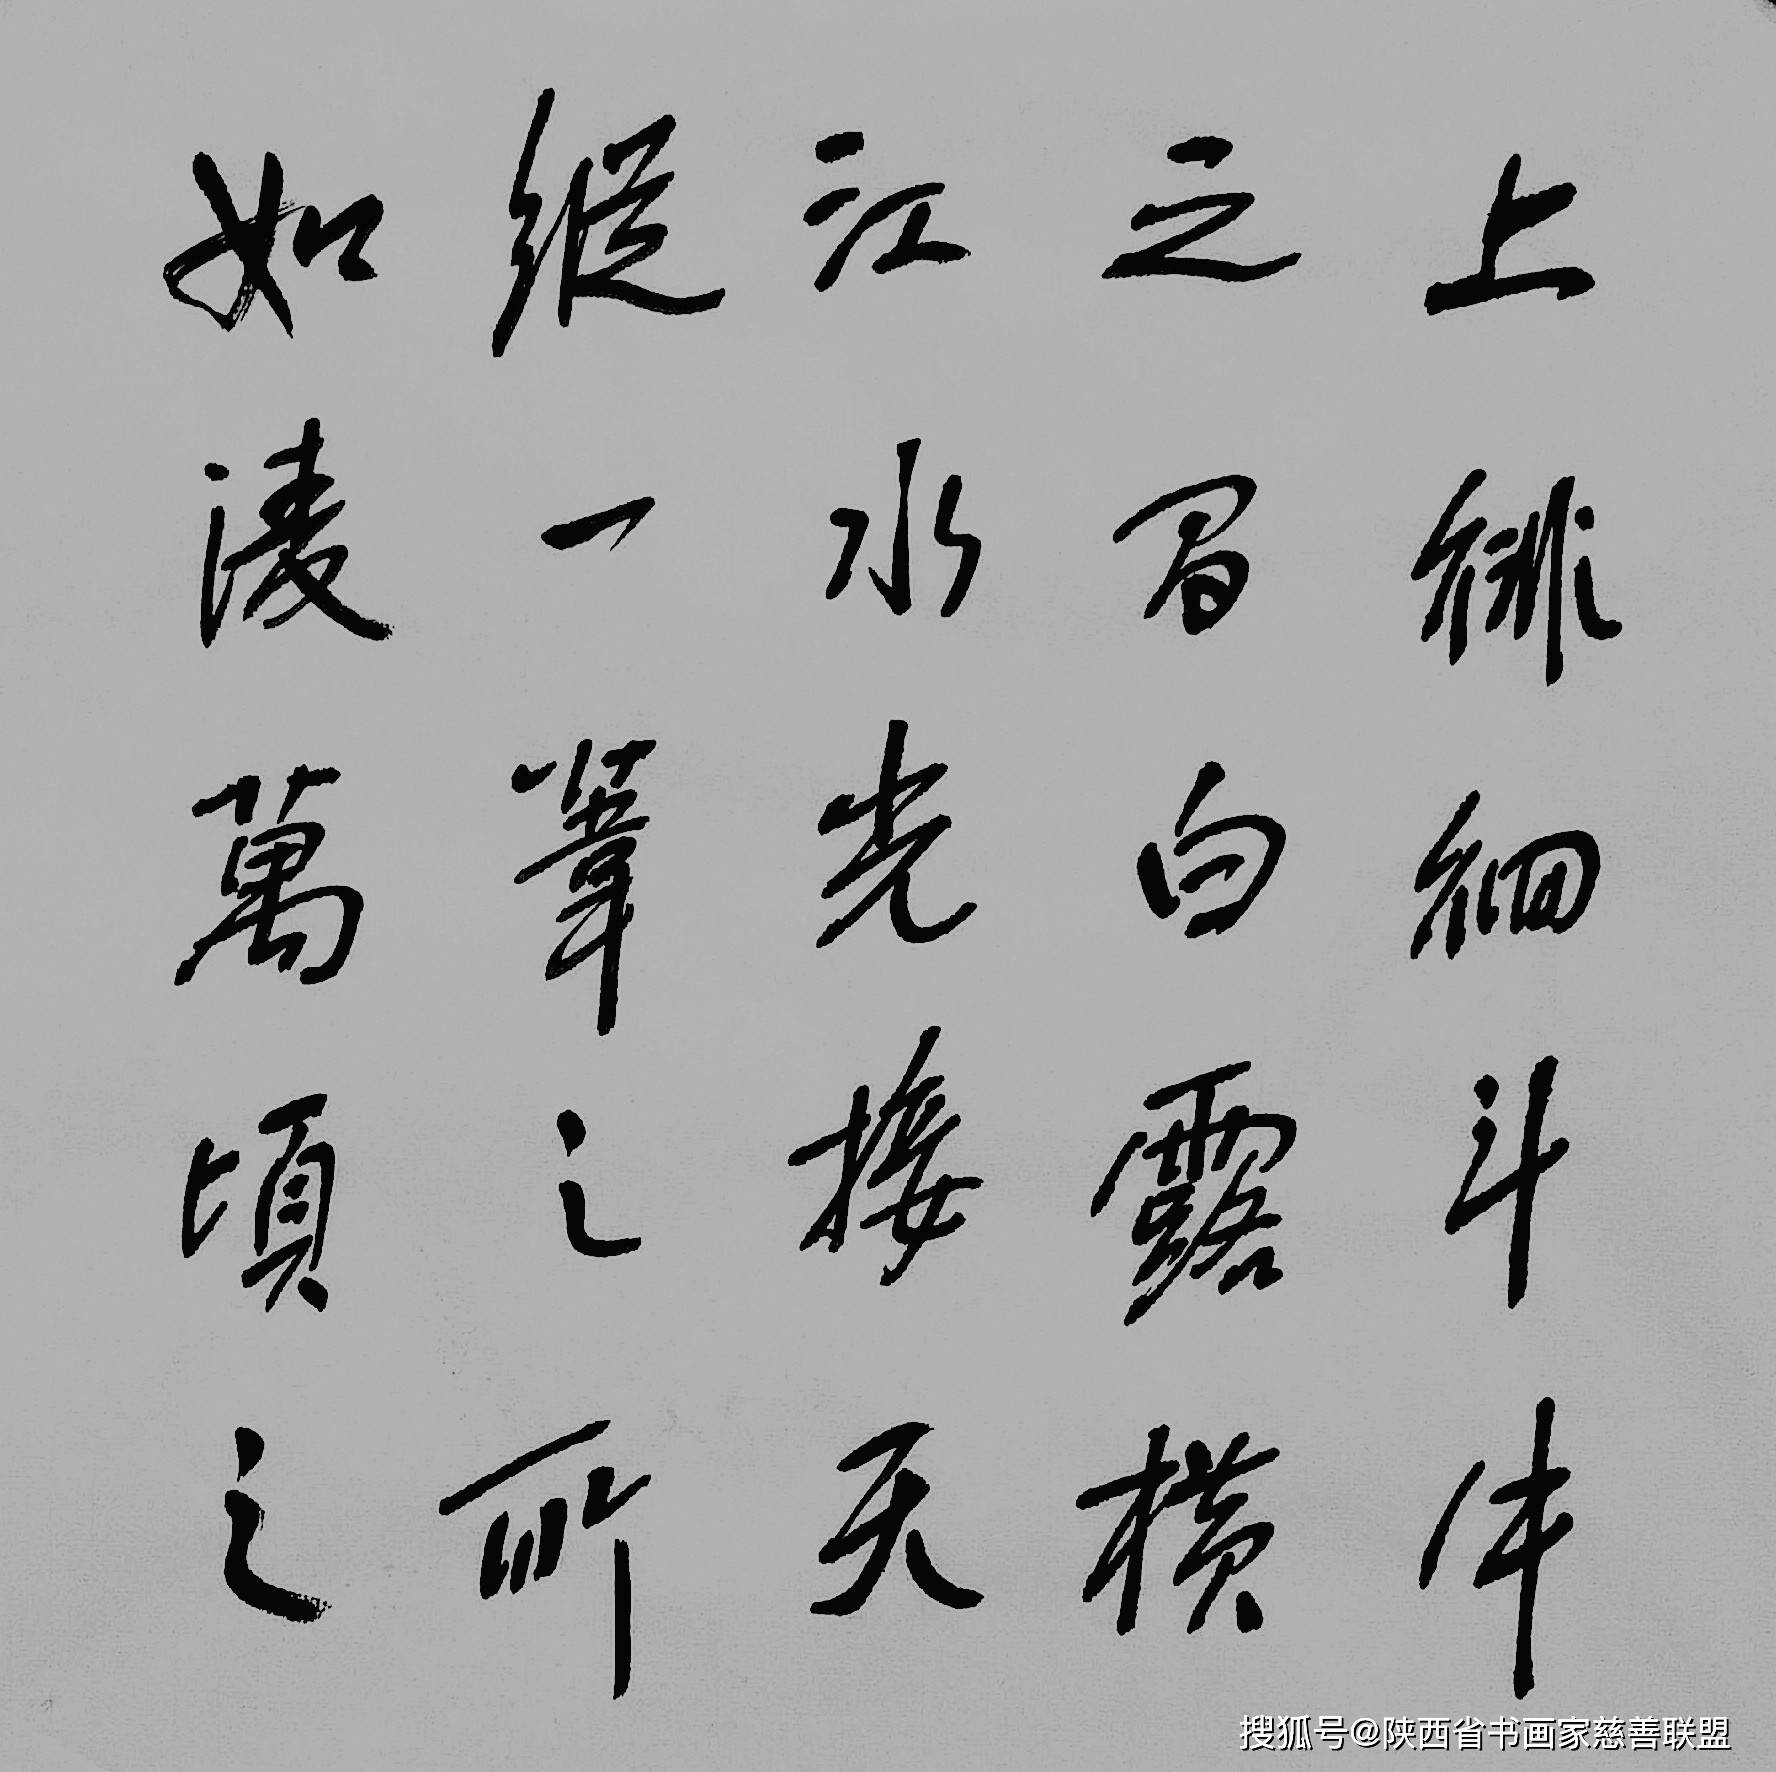 上徘徊斗牛
之間白露橫
江水光接天
縱一葦之所
如淩萬頃之
搜狐号@陕西省书画家慈善联盟